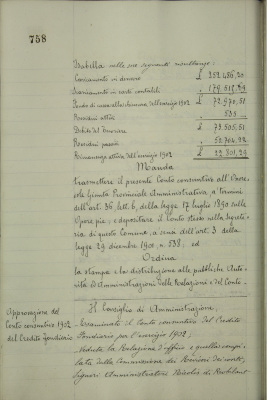 758
Isabella nelle sue seguenti risultanze:
Caricamento in denaro £ 252.486,20
Scaricamento in carte contabili " 179.515,69
Fondo di cassa alla chiusura dell'esercizio 1902 £ 72.970,51
Residui attivi " 535
Debito del Tesoriere £ 73.505,51
Residui passivi
Rimanenza attiva dell'esercizio 1902 £
Manda
trasmettere il presente Conto consuntivo all'Onore-
vole Giunta Provinciale Amministrativa, a termini
dell'art. 36 lett. b, della legge 17 luglio 1890 sulle
Opere pie; e depositare il Conto stesso nella Segrete-
ria di questo Comune, a sensi dell'art. 3 della
legge 29 dicembre 1901 n. 538; ed
Ordina
la stampa e la distribuzione alle pubbliche Auto-
rità ed Amministrazioni delle Relazioni e del Conto.
Approvazione del
Conto consuntivo 1902
del Credito fondiario
Il Consiglio di Amministrazione,
Esaminato il Conto consuntivo del Credito
Fondiario per l'esercizio 1902.
Veduta la Relazione d'ufficio e quella compi-
lata dalla Commissione dei Revisori dei conti,
signori Amministratori Nicolis di Robilant